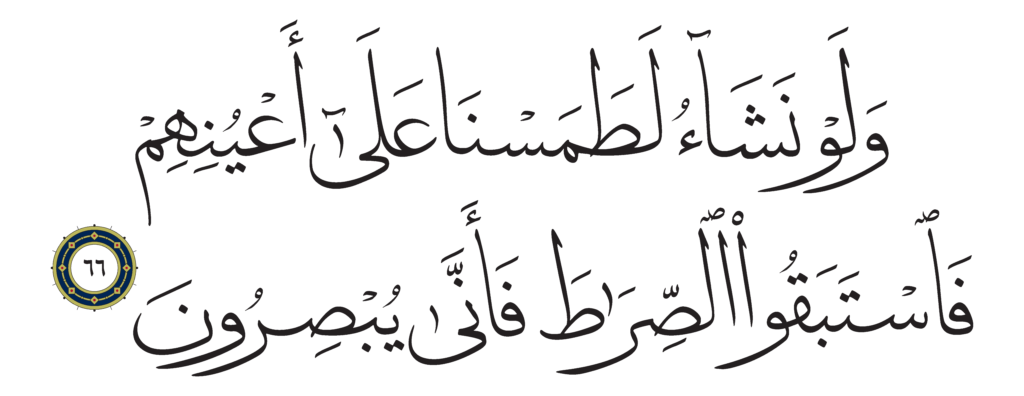 وَلَوْ نَشَآءُ لَطَمَسْنَا عَلَىٰٓ أَعْيُنِهِمْ
فَٱسْتَبَقُوا۟ ٱلصِّرَٰطَ فَأَنَّىٰ يُبْصِرُونَ ٦٦